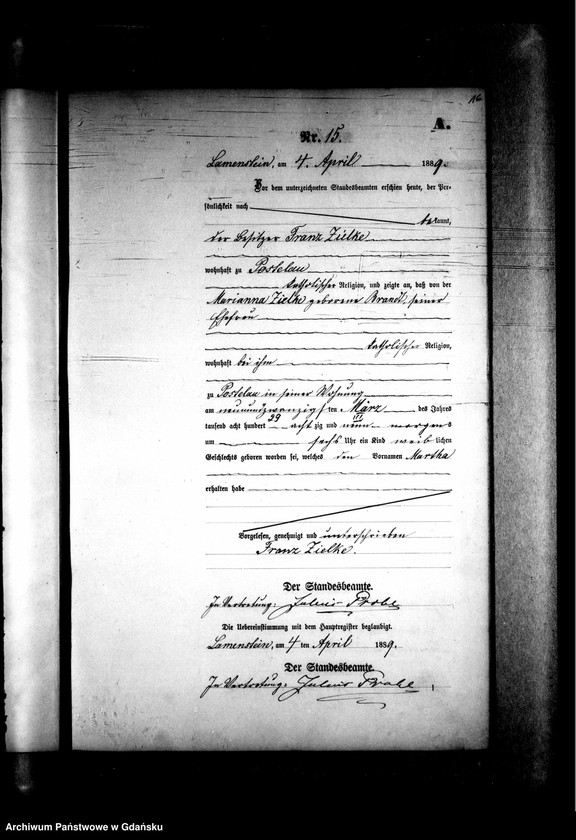 16
A.
Nr. 15.
Lamenstein, am 4. April 1889.
Vor dem unterzeichneten Standesbeamten erschien heute, der Per-
sönlichkeit nach
bekannt,
der Besitzer Franz Zielke
wohnhaft zu Postelau
katholischer Religion, und zeigte an, daß von der
Marianna Zielke geborene Brandt, seiner
Ehefrau
katholischer Religion,
wohnhaft bei ihm
zu Postelau in seiner Wohnung
am neunundzwanzigsten März des Jahres
29 III
tausend acht hundert achtzig und neun morgens
um sechs Uhr ein Kind weiblichen
Geschlechts geboren worden sei, welches den Vornamen Martha
erhalten habe
Vorgelesen, genehmigt und unterschrieben
Franz Zielke.
Der Standesbeamte.
In Vertretung: Julius
Die Uebereinstimmung mit dem Hauptregister beglaubigt.
Lamenstein, am 4 ten April 1889.
Der Standesbeamte.
In Vertretung: Julius
Archiwum Państwowe w Gdańsku